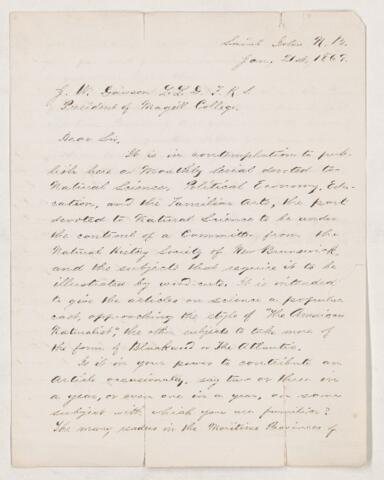 Saint John N. B.
Jan, 21st, 1867.
J. W. Dawson L.L.D F.R.S
President of Magill College.
Dear Sir,
It is in contemplation to pub-
lish here a Monthly Serial devoted to
Natural Science, Political Economy, Edu-
cation, and the Familiar Arts, the part
devoted to Natural Science to be under
the control of a Committee from the
Natural History Society of New Brunswick,
and the subjects that require it to be
illustrated by wood-cuts. It is intended
to give the articles on science a popular
cast, approaching the style of "The American
Naturalist", the other subjects to take more of
the form of Blackwood or The Atlantic.
Is it in your power to contribute an
Article occasionally, say two or three in
a year, or even one in a year, on some
subject with which you are familiar?
The many readers in the Maritime Provinces of